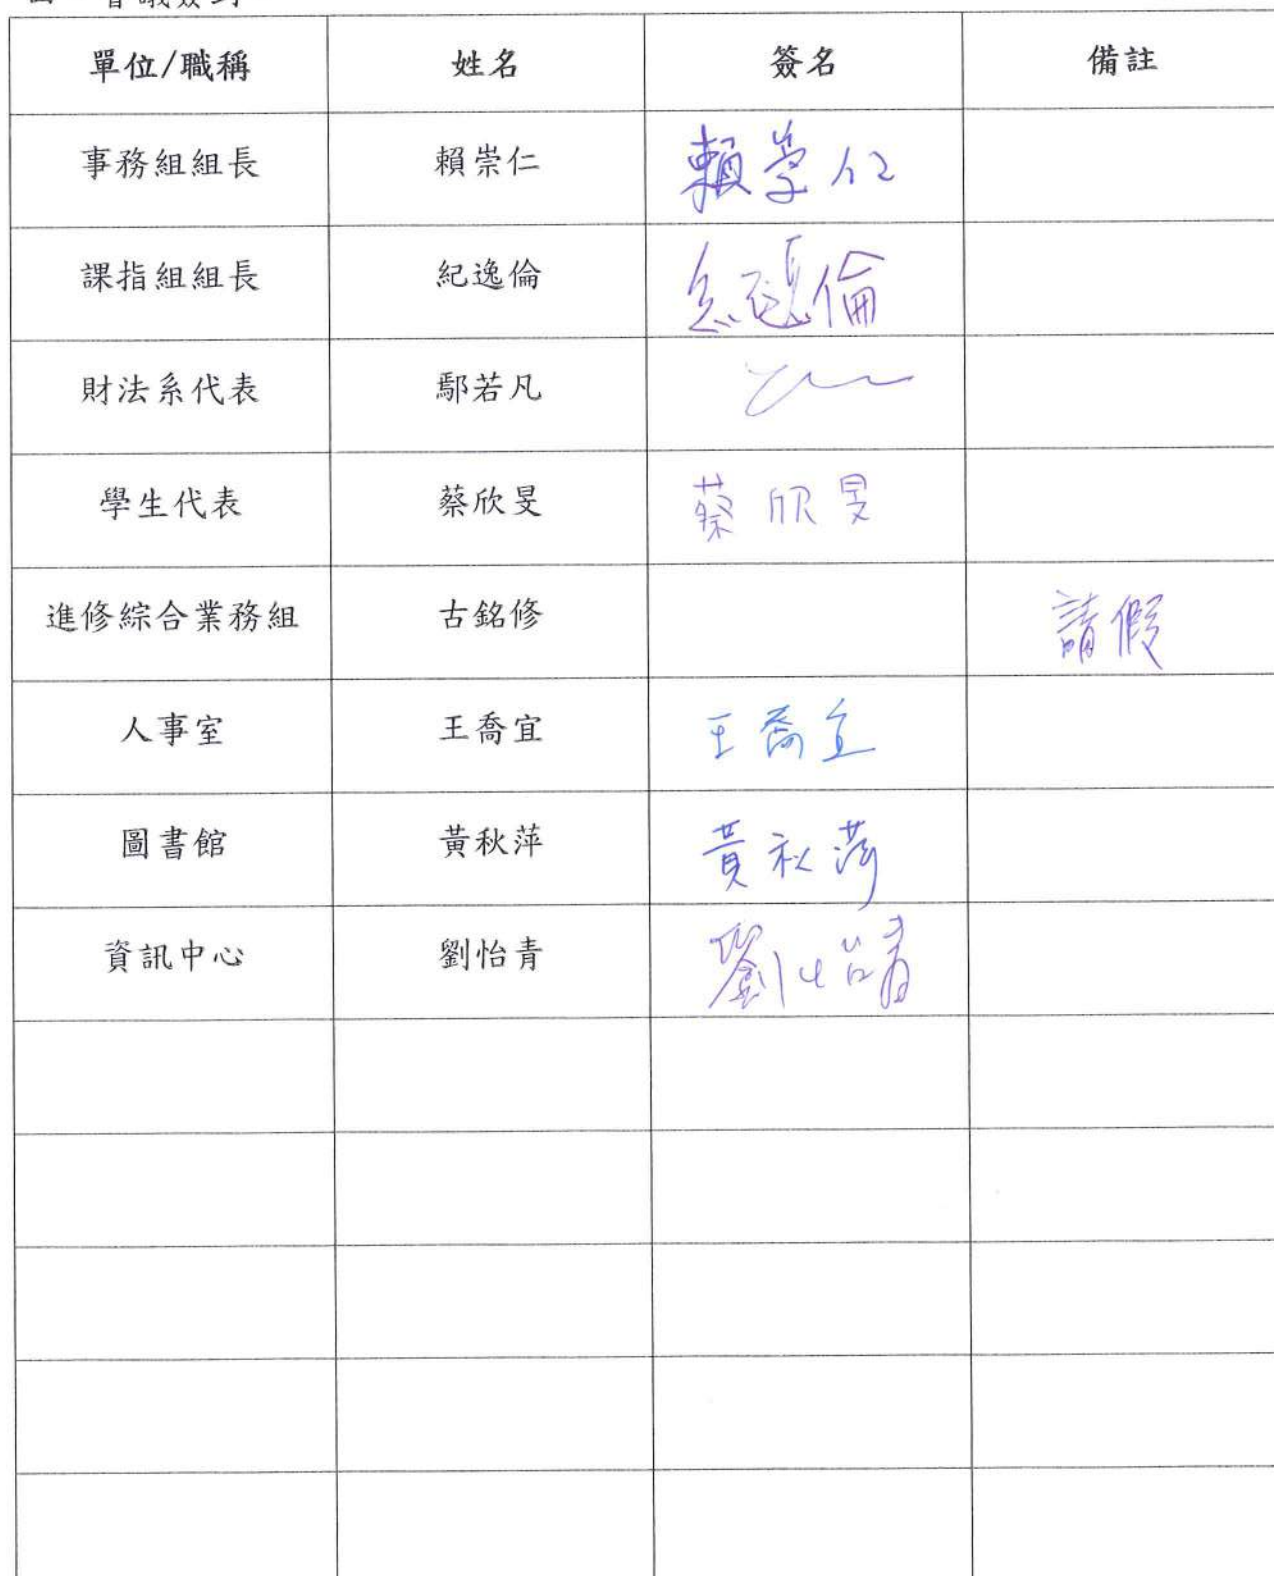 會議簽到
單位/職稱 姓名 簽名 備註
事務組組長 賴崇仁 賴崇仁
課指組組長 紀逸倫 紀逸倫
財法系代表 鄢若凡
學生代表 蔡欣旻 蔡欣旻
進修綜合業務組 古銘修 請假
人事室 王喬宜 王喬宜
圖書館 黃秋萍 黃秋萍
資訊中心 劉怡青 劉怡青